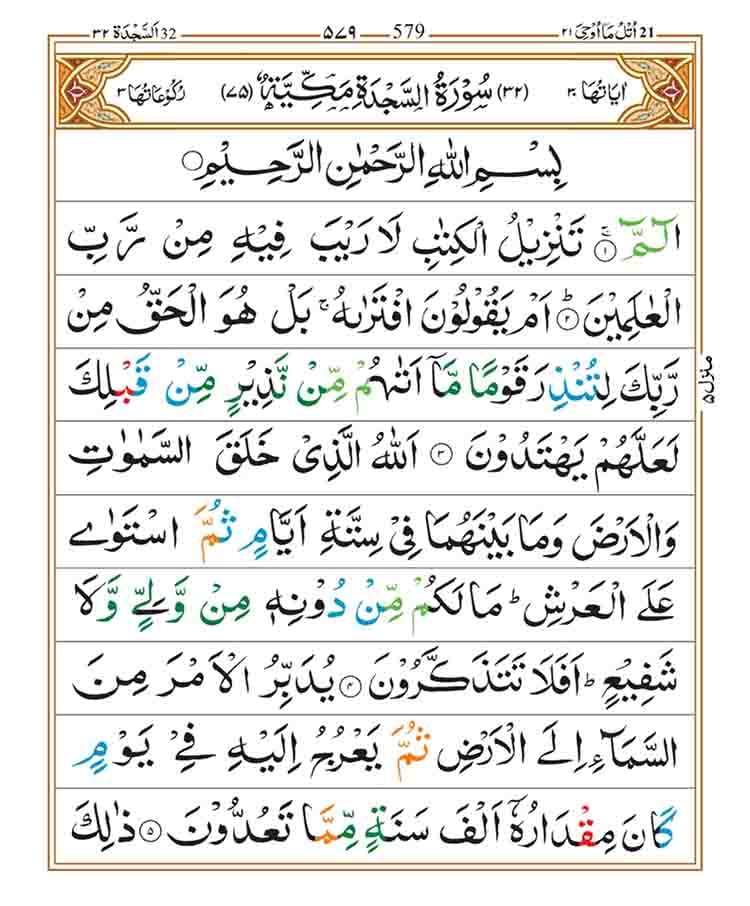 21 اُتْلُ مَآ اُوْحِیَ ٢١ 579 ۵۷۹ 32 اَلسَّجْدَة ٣٢
اٰيَاتُهَا ٣٠ (٣٢) سُوْرَةُ السَّجْدَةِ مَكِّيَّةٌ (٧٥) رُكُوْعَاتُهَا ٣
بِسْمِ اللّٰهِ الرَّحْمٰنِ الرَّحِيْمِ ۝
الٓمّٓ ۝١ۚ تَنْزِيْلُ الْكِتٰبِ لَا رَيْبَ فِيْهِ مِنْ رَّبِّ
الْعٰلَمِيْنَ ۝٢ؕ اَمْ يَقُوْلُوْنَ افْتَرٰىهُ ۚ بَلْ هُوَ الْحَقُّ مِنْ
رَّبِّكَ لِتُنْذِرَ قَوْمًا مَّآ اَتٰىهُمْ مِّنْ نَّذِيْرٍ مِّنْ قَبْلِكَ
لَعَلَّهُمْ يَهْتَدُوْنَ ۝٣ اَللّٰهُ الَّذِيْ خَلَقَ السَّمٰوٰتِ
وَالْاَرْضَ وَمَا بَيْنَهُمَا فِيْ سِتَّةِ اَيَّامٍ ثُمَّ اسْتَوٰى
عَلَى الْعَرْشِ ؕ مَا لَكُمْ مِّنْ دُوْنِهٖ مِنْ وَّلِيٍّ وَّلَا
شَفِيْعٍ ؕ اَفَلَا تَتَذَكَّرُوْنَ ۝٤ يُدَبِّرُ الْاَمْرَ مِنَ
السَّمَآءِ اِلَى الْاَرْضِ ثُمَّ يَعْرُجُ اِلَيْهِ فِيْ يَوْمٍ
كَانَ مِقْدَارُهٗٓ اَلْفَ سَنَةٍ مِّمَّا تَعُدُّوْنَ ۝٥ ذٰلِكَ
منزل ۵